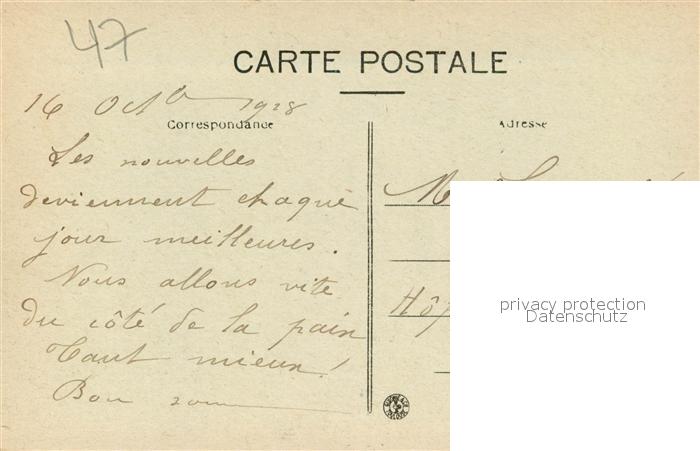 47
CARTE POSTALE
16 Octb 1918
Correspondance
Adresse
Les nouvelles
deviennent chaque
jour meilleures.
Nous allons vite
du côté de la paix
Tant mieux!
Bon
M
Hôp
privacy protection
Datenschutz